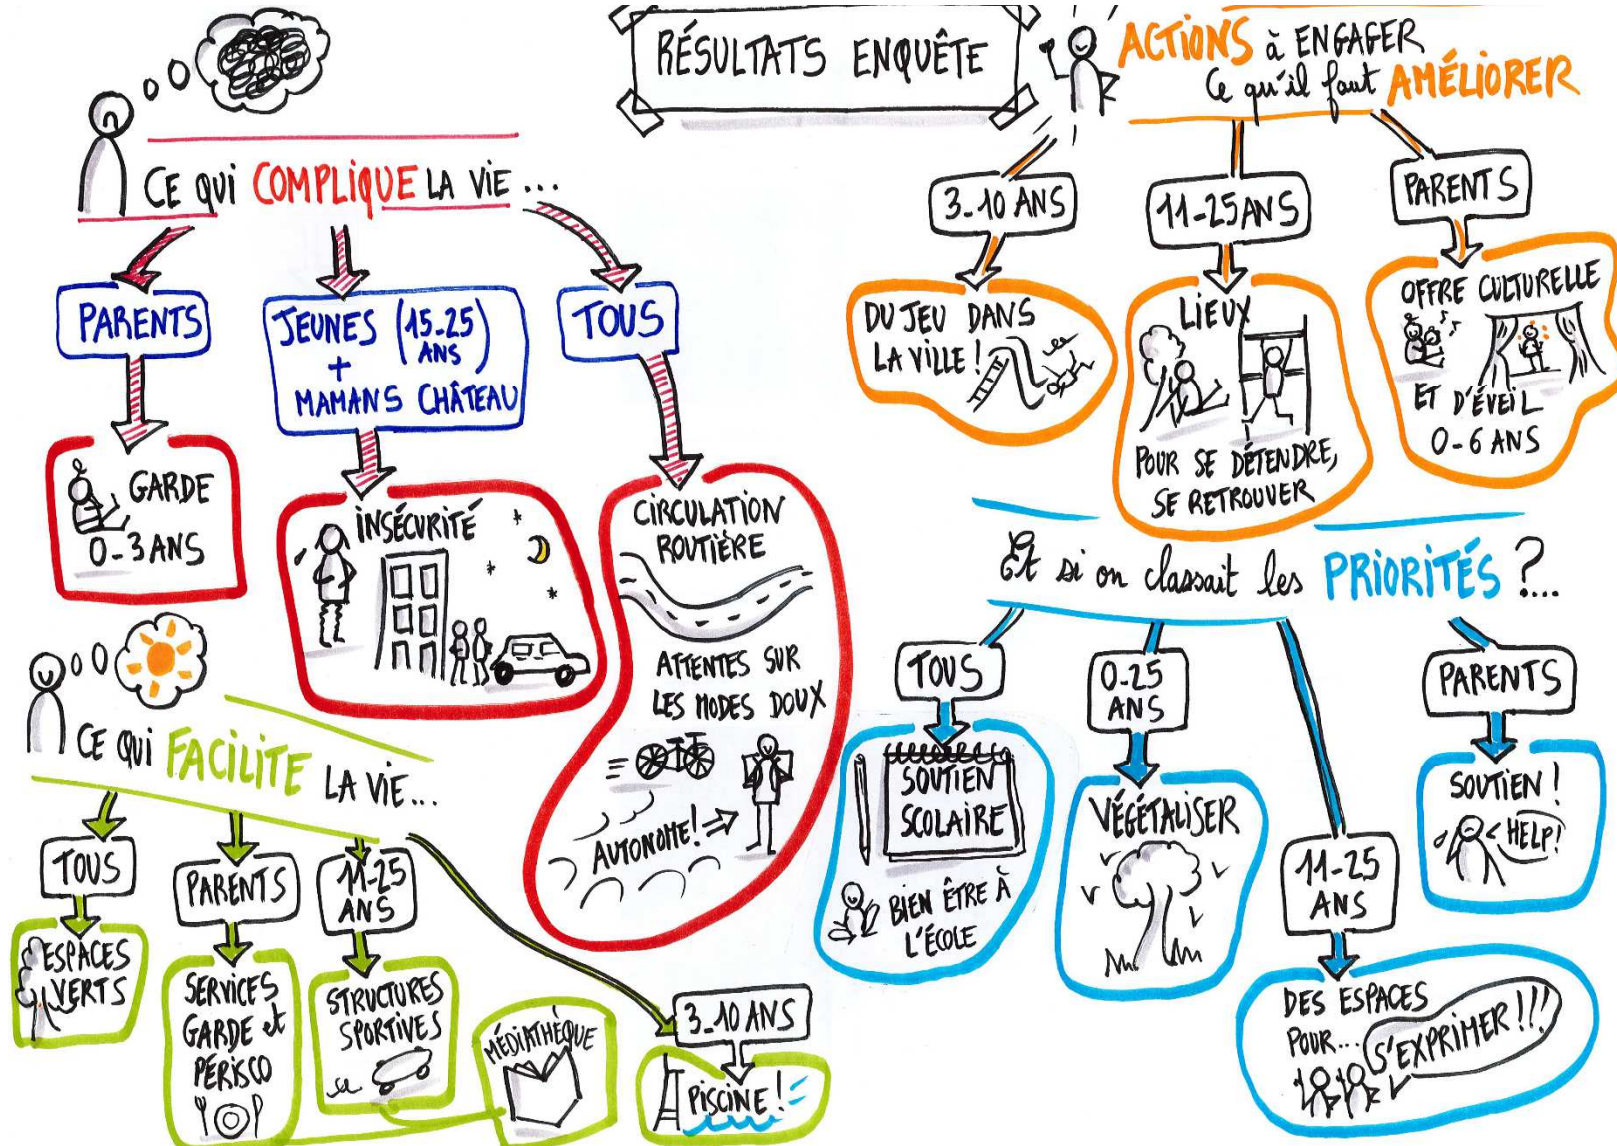 RÉSULTATS ENQUÊTE
CE QUI COMPLIQUE LA VIE ...
PARENTS
GARDE
0-3 ANS
JEUNES (15-25 ANS)
+
MAMANS CHÂTEAU
INSÉCURITÉ
TOUS
CIRCULATION
ROUTIÈRE
ATTENTES SUR
LES MODES DOUX
AUTONOME!
CE QUI FACILITE LA VIE...
TOUS
ESPACES
VERTS
PARENTS
SERVICES
GARDE et
PÉRISCO
11-25
ANS
STRUCTURES
SPORTIVES
MÉDIATHÈQUE
3-10 ANS
PISCINE!
ACTIONS à ENGAGER
Ce qu'il faut AMÉLIORER
3-10 ANS
DU JEU DANS
LA VILLE!
11-25 ANS
LIEUX
POUR SE DÉTENDRE,
SE RETROUVER
PARENTS
OFFRE CULTURELLE
ET D'ÉVEIL
0-6 ANS
Et si on classait les PRIORITÉS ?...
TOUS
SOUTIEN
SCOLAIRE
BIEN ÊTRE À
L'ÉCOLE
0-25
ANS
VÉGÉTALISER
11-25
ANS
DES ESPACES
POUR...
S'EXPRIMER!!!
PARENTS
SOUTIEN!
HELP!